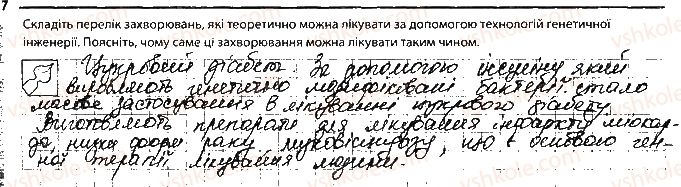 7
Складіть перелік захворювань, які теоретично можна лікувати за допомогою технологій генетичної
інженерії. Поясніть, чому саме ці захворювання можна лікувати таким чином.
Цукровий діабет. За допомогою інсуліну який
виробляють генетично модифіковані бактерії стало
масове застосування в лікуванні цукрового діабету.
Виготовляють препарати для лікування інфаркту міокар-
да, низки форм раку, муковісцидозу, що є основою ген-
ної терапії лікування людини.